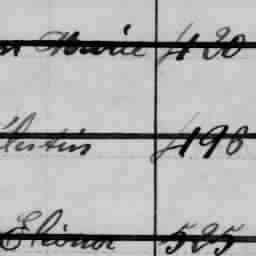 Marie 430
lestin 498
Elionor 525